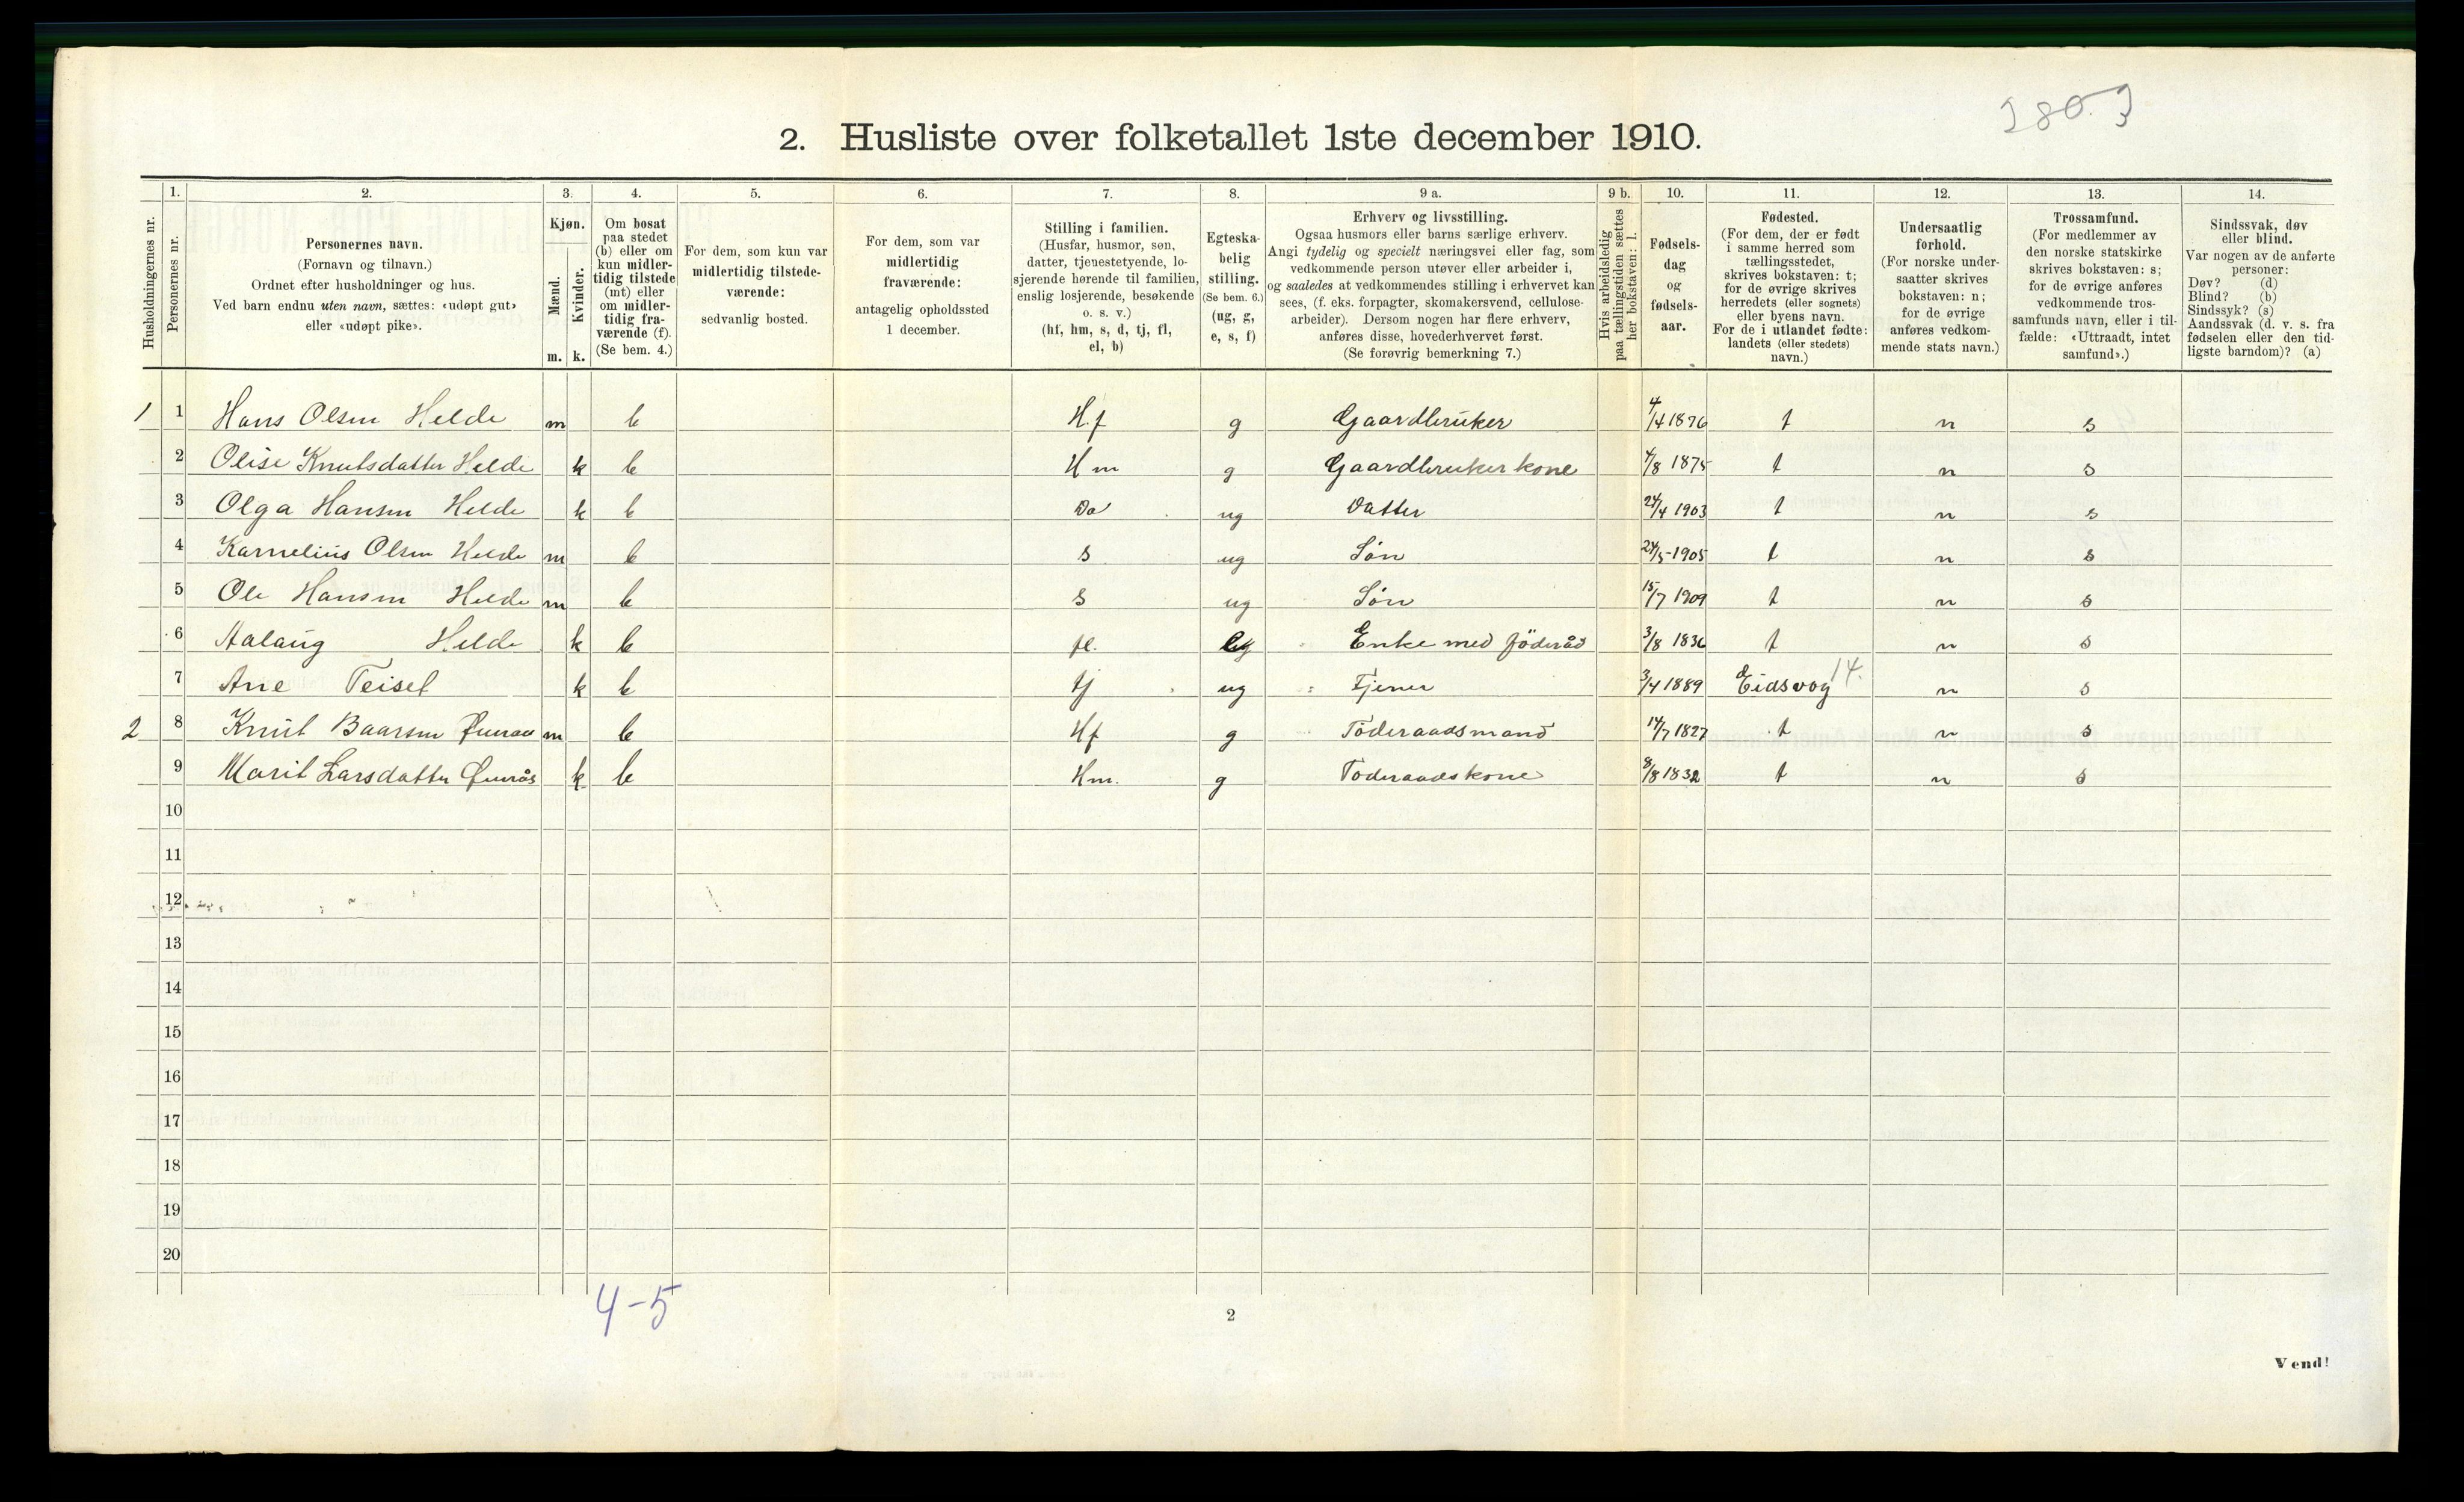 280.3
2. Husliste over folketallet 1ste december 1910.
Husholdningernes nr.
1. Personernes nr.
2. Personernes navn. (Fornavn og tilnavn.) Ordnet efter husholdninger og hus. Ved barn endnu uten navn, sættes: «udøpt gut» eller «udøpt pike».
3. Kjøn. Mænd. m. Kvinder. k.
4. Om bosat paa stedet (b) eller om kun midlertidig tilstede (mt) eller om midlertidig fraværende (f). (Se bem. 4.)
5. For dem, som kun var midlertidig tilstedeværende: sedvanlig bosted.
6. For dem, som var midlertidig fraværende: antagelig opholdssted 1 december.
7. Stilling i familien. (Husfar, husmor, søn, datter, tjenestetyende, losjerende hørende til familien, enslig losjerende, besøkende o. s. v.) (hf, hm, s, d, tj, fl, el, b)
8. Egteskabelig stilling. (Se bem. 6.) (ug, g, e, s, f)
9 a. Erhverv og livsstilling. Ogsaa husmors eller barns særlige erhverv. Angi tydelig og specielt næringsvei eller fag, som vedkommende person utøver eller arbeider i, og saaledes at vedkommendes stilling i erhvervet kan sees, (f. eks. forpagter, skomakersvend, cellulosearbeider). Dersom nogen har flere erhverv, anføres disse, hovederhvervet først. (Se forøvrig bemerkning 7.)
9 b. Hvis arbeidsledig paa tællingstiden sættes her bokstaven: l.
10. Fødselsdag og fødselsaar.
11. Fødested. (For dem, der er født i samme herred som tællingsstedet, skrives bokstaven: t; for de øvrige skrives herredets (eller sognets) eller byens navn. For de i utlandet fødte: landets (eller stedets) navn.)
12. Undersaatlig forhold. (For norske undersaatter skrives bokstaven: n; for de øvrige anføres vedkommende stats navn.)
13. Trossamfund. (For medlemmer av den norske statskirke skrives bokstaven: s; for de øvrige anføres vedkommende trossamfunds navn, eller i tilfælde: «Uttraadt, intet samfund».)
14. Sindssvak, døv eller blind. Var nogen av de anførte personer: Døv? (d) Blind? (b) Sindssyk? (s) Aandssvak (d. v. s. fra fødselen eller den tidligste barndom)? (a)
1 1 Hans Olsen Helde m b H.f g Gaardbruker 4/4 1876 t n s
2 Olise Knutsdatter Helde k b Hm g Gaardbruker kone 4/8 1875 t n s
3 Olga Hansen Helde k b Da ug Datter 24/4 1903 t n s
4 Karnelius Olsen Helde m b s ug Søn 24/5-1905 t n s
5 Ole Hansen Helde m b s ug Søn 15/7 1909 t n s
6 Aalaug Helde k b fl. Enke med föderåd 3/8 1836 t n s
7 Ane Teisel k b tj ug Tjener 3/4 1889 Eidsvog 14. n s
2 8 Knut Baarsen m b Hf g Föderaadsmand 14/7 1827 t n s
9 Marit Larsdatter k b Hm. g Föderaadskone 8/8 1832 t n s
10
11
12
13
14
15
16
17
18
19
20
4-5
2
Vend!